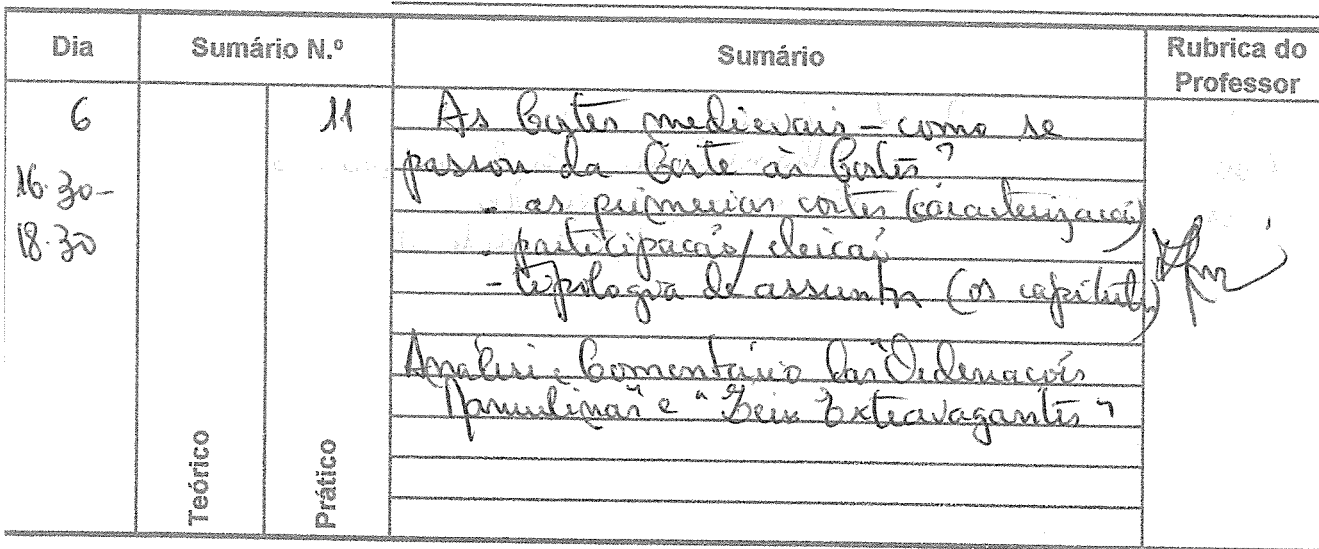 Dia
Sumário N.º
Sumário
Rubrica do
Professor
6
11
16.30-
18.30
As Cortes medievais - como se
passou da Corte às Cortes?
- as primeiras cortes (caracterização)
- participação/eleição
- tipologia de assuntos (os capítulos)
Análise e Comentário das "Ordenações
Manuelinas" e "Leis Extravagantes"
Teórico
Prático